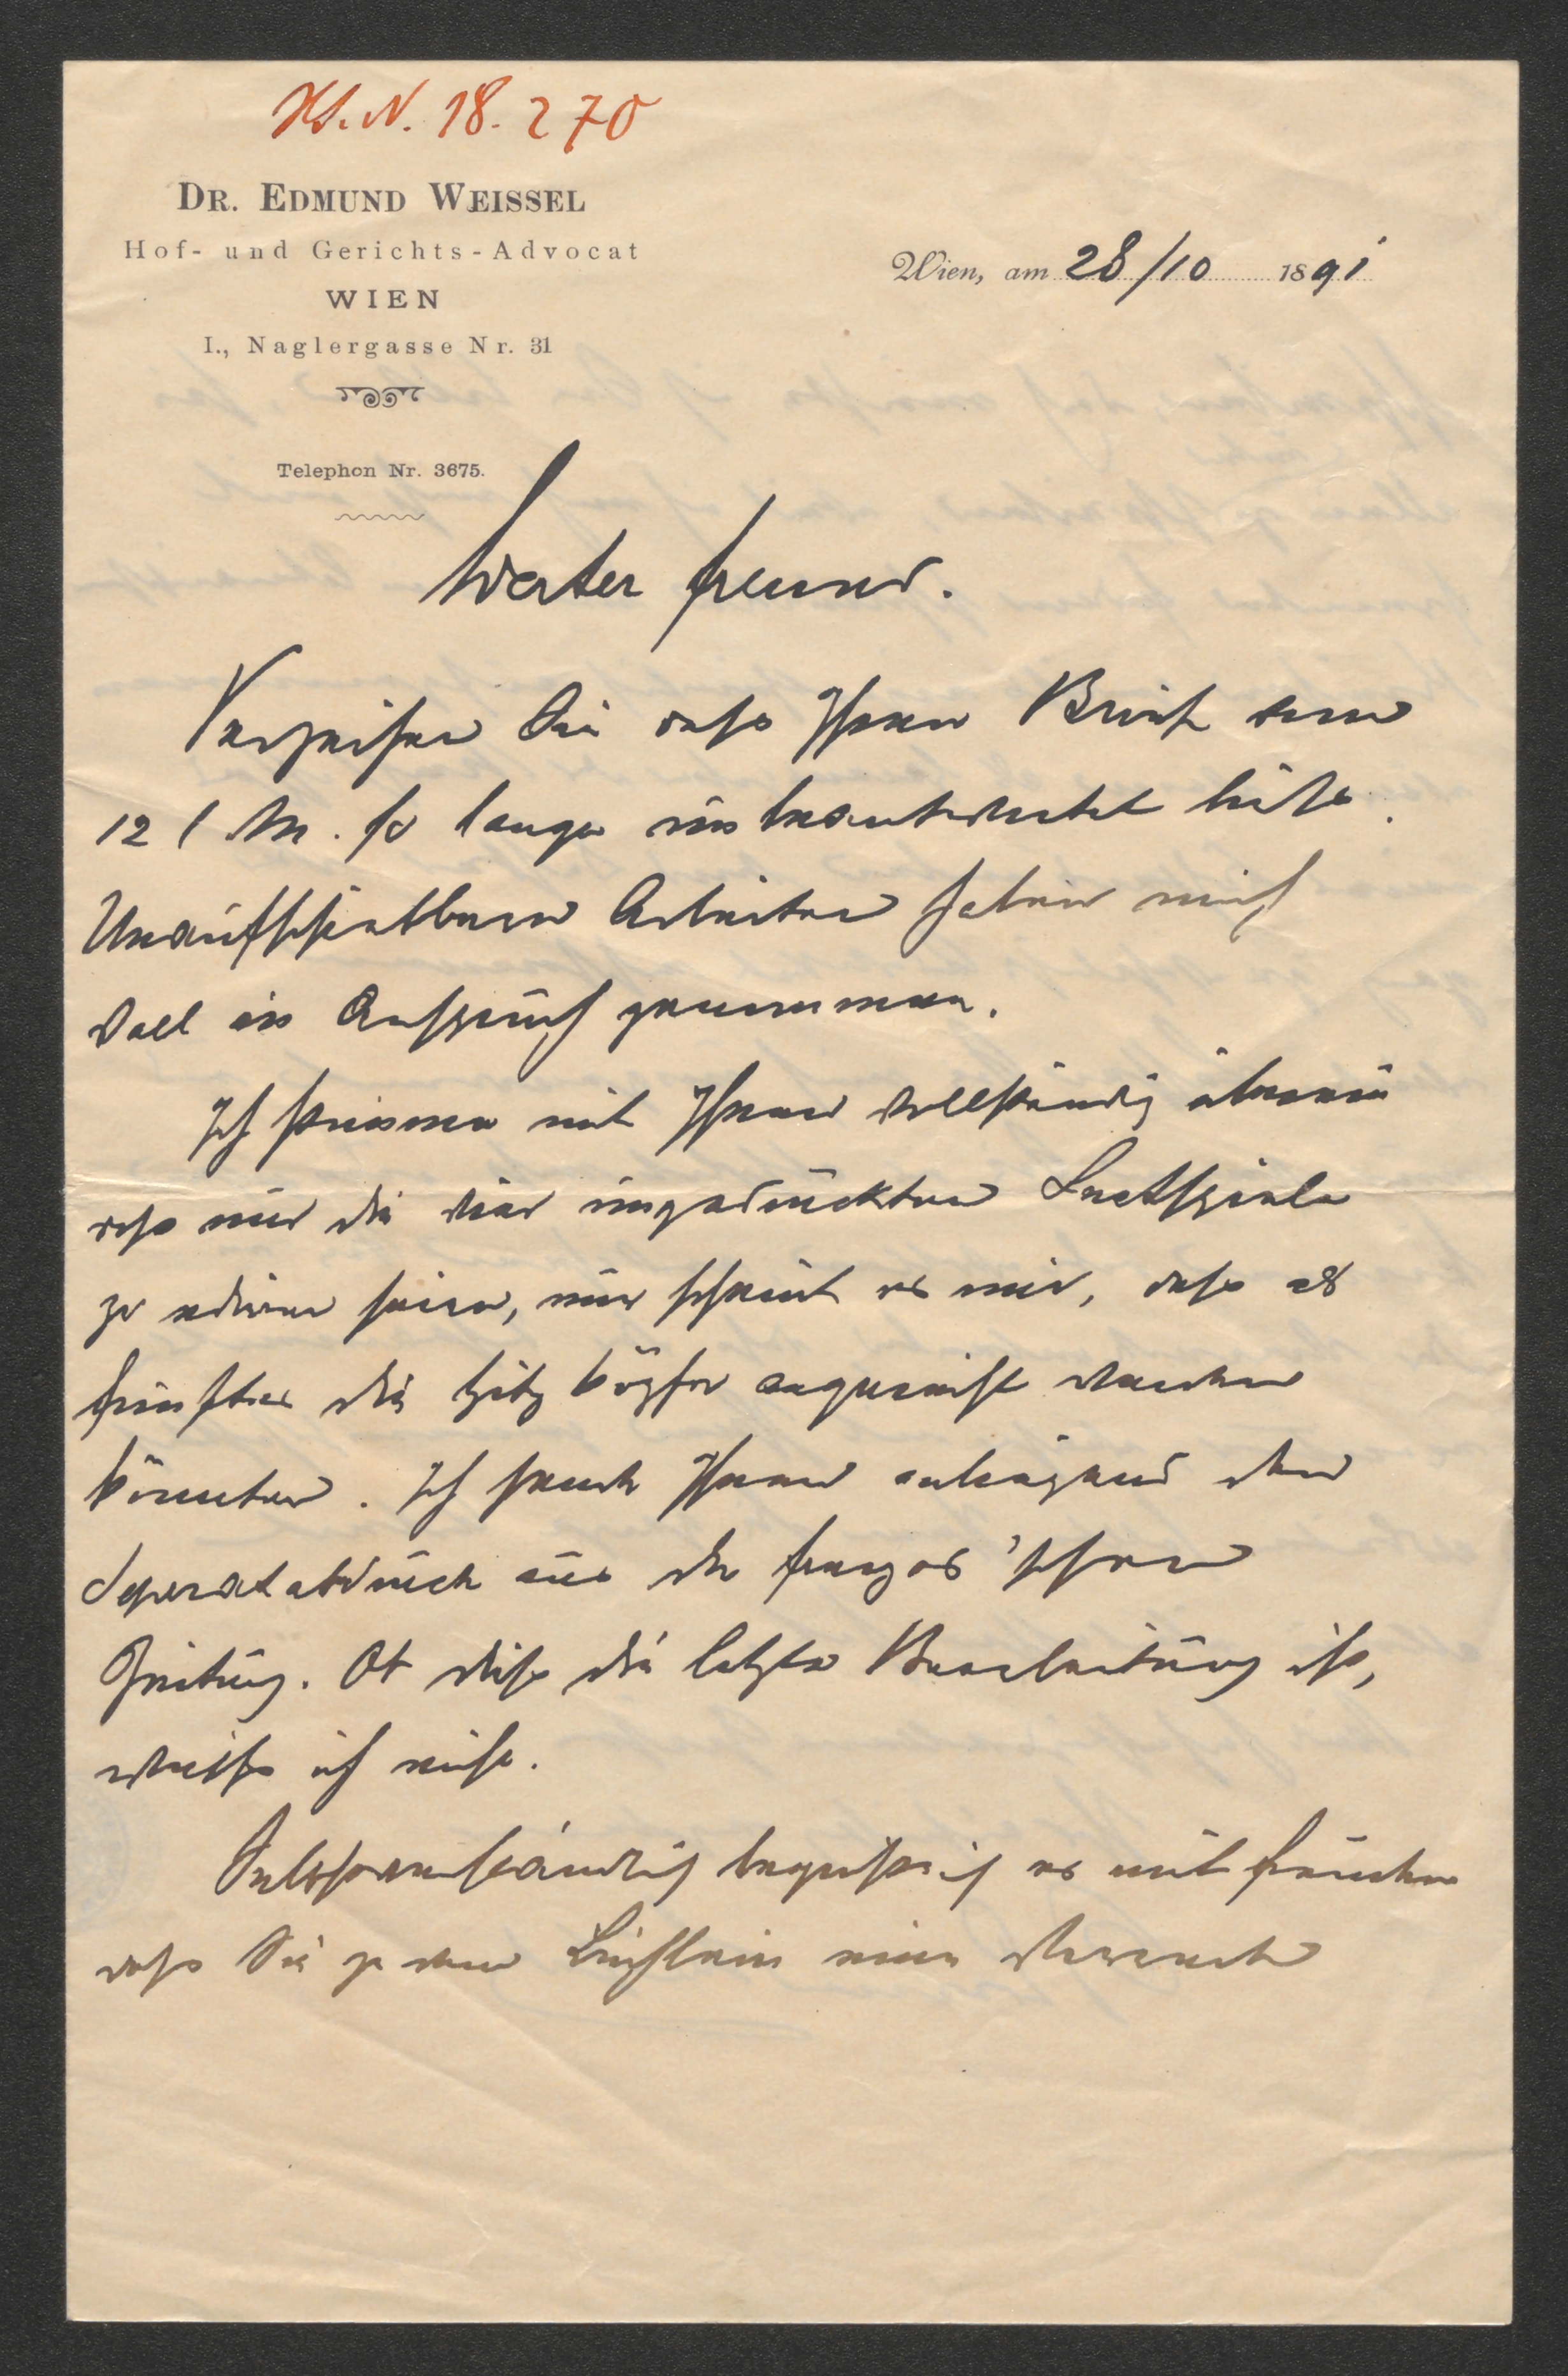 H.I.N. 18.270
DR. EDMUND WEISSEL
Hof- und Gerichts-Advocat
WIEN
I., Naglergasse Nr. 31
Telephon Nr. 3675.
Wien, am 28/10 1891
Werter Freund.
Verzeihen Sie dass Ihren Brief vom
12 l. M. so lange unbeantwortet ließ.
Unaufschiebbare Arbeiten haben mich
voll in Anspruch genommen.
Ich stimme mit Ihnen vollständig überein
dass nur die vier ungedruckten Lustspiele
zu edieren seien, nur scheint es mir, dass als
fünftes die Hitzköpfe angereiht werden
könnten. Ich sende Ihnen beiliegend den
Separatabdruck aus der französischen
Zeitung. Ob diese die letzte Bearbeitung ist,
weiss ich nicht.
Selbstverständlich begrüße ich es mit Freuden
dass Sie zu dem Büchlein eine Vorrede